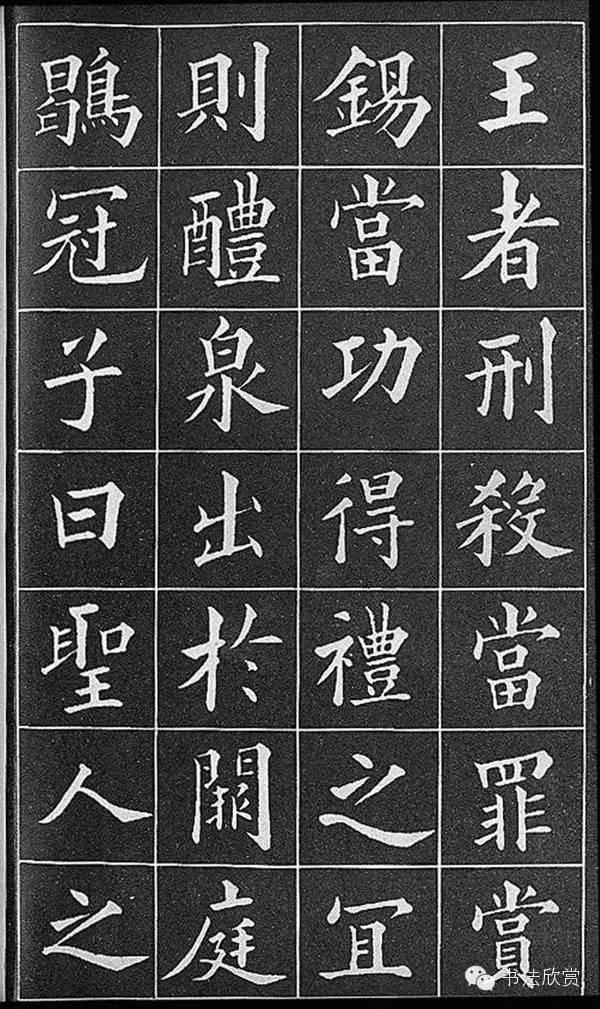 王者刑殺當罪賞
錫當功得禮之宜
則醴泉出於闕庭
鶡冠子曰聖人之
书法欣赏